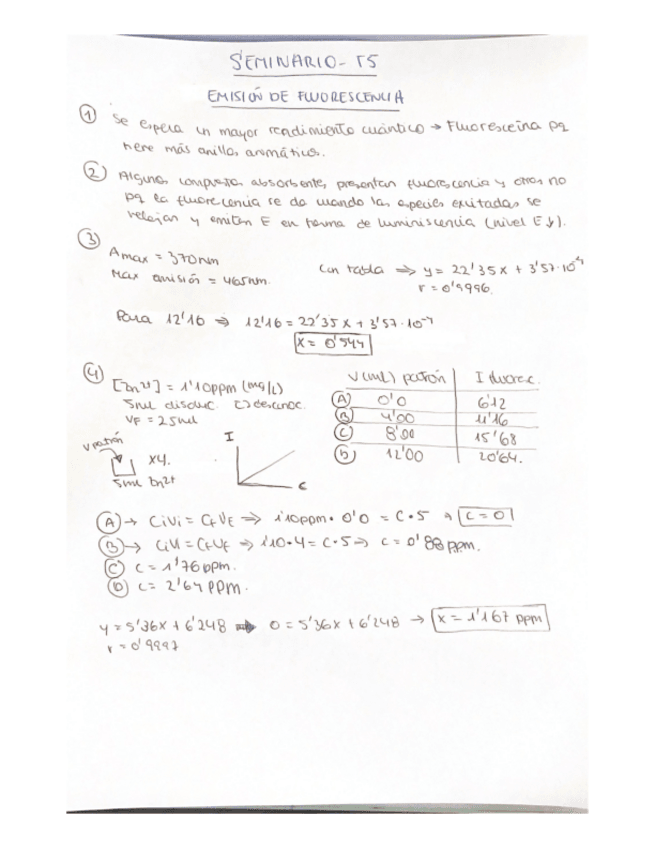 SEMINARIO - T5
EMISIÓN DE FLUORESCENCIA
① Se espera un mayor rendimiento cuántico → Fluoresceína pq
tiene más anillos aromáticos.
② Algunos compuestos absorbentes, presentan fluorescencia y otros no
pq la fluorescencia se da cuando las especies exitadas se
relajan y emiten E en forma de luminiscencia (nivel E↓).
③
Amax = 370nm
Max emisión = 465nm.
Con tabla ⇒ y = 22'35x + 3'57·10⁻⁴
r = 0'9996
Para 12'16 ⇒ 12'16 = 22'35x + 3'57·10⁻⁴
x = 0'544
④
[Zn²⁺] = 1'10ppm (mg/L)
5ml disoluc. [] desconoc.
VF = 25ml
V(mL) patrón | I fluoresc.
Ⓐ 0'0 | 6'12
Ⓑ 4'00 | 11'16
Ⓒ 8'00 | 15'68
Ⓓ 12'00 | 20'64.
V patrón
x4.
5ml Zn²⁺
I
C
Ⓐ → CiVi = CfVF ⇒ 1'10ppm · 0'0 = C·5 → C = 0
Ⓑ → CiVi = CfVf ⇒ 1'10·4 = C·5 ⇒ C = 0'88 ppm.
Ⓒ C = 1'76 ppm.
Ⓓ C = 2'64 ppm.
y = 5'36x + 6'248 ⇒ 0 = 5'36x + 6'248 → x = 1'167 ppm
r = 0'9997